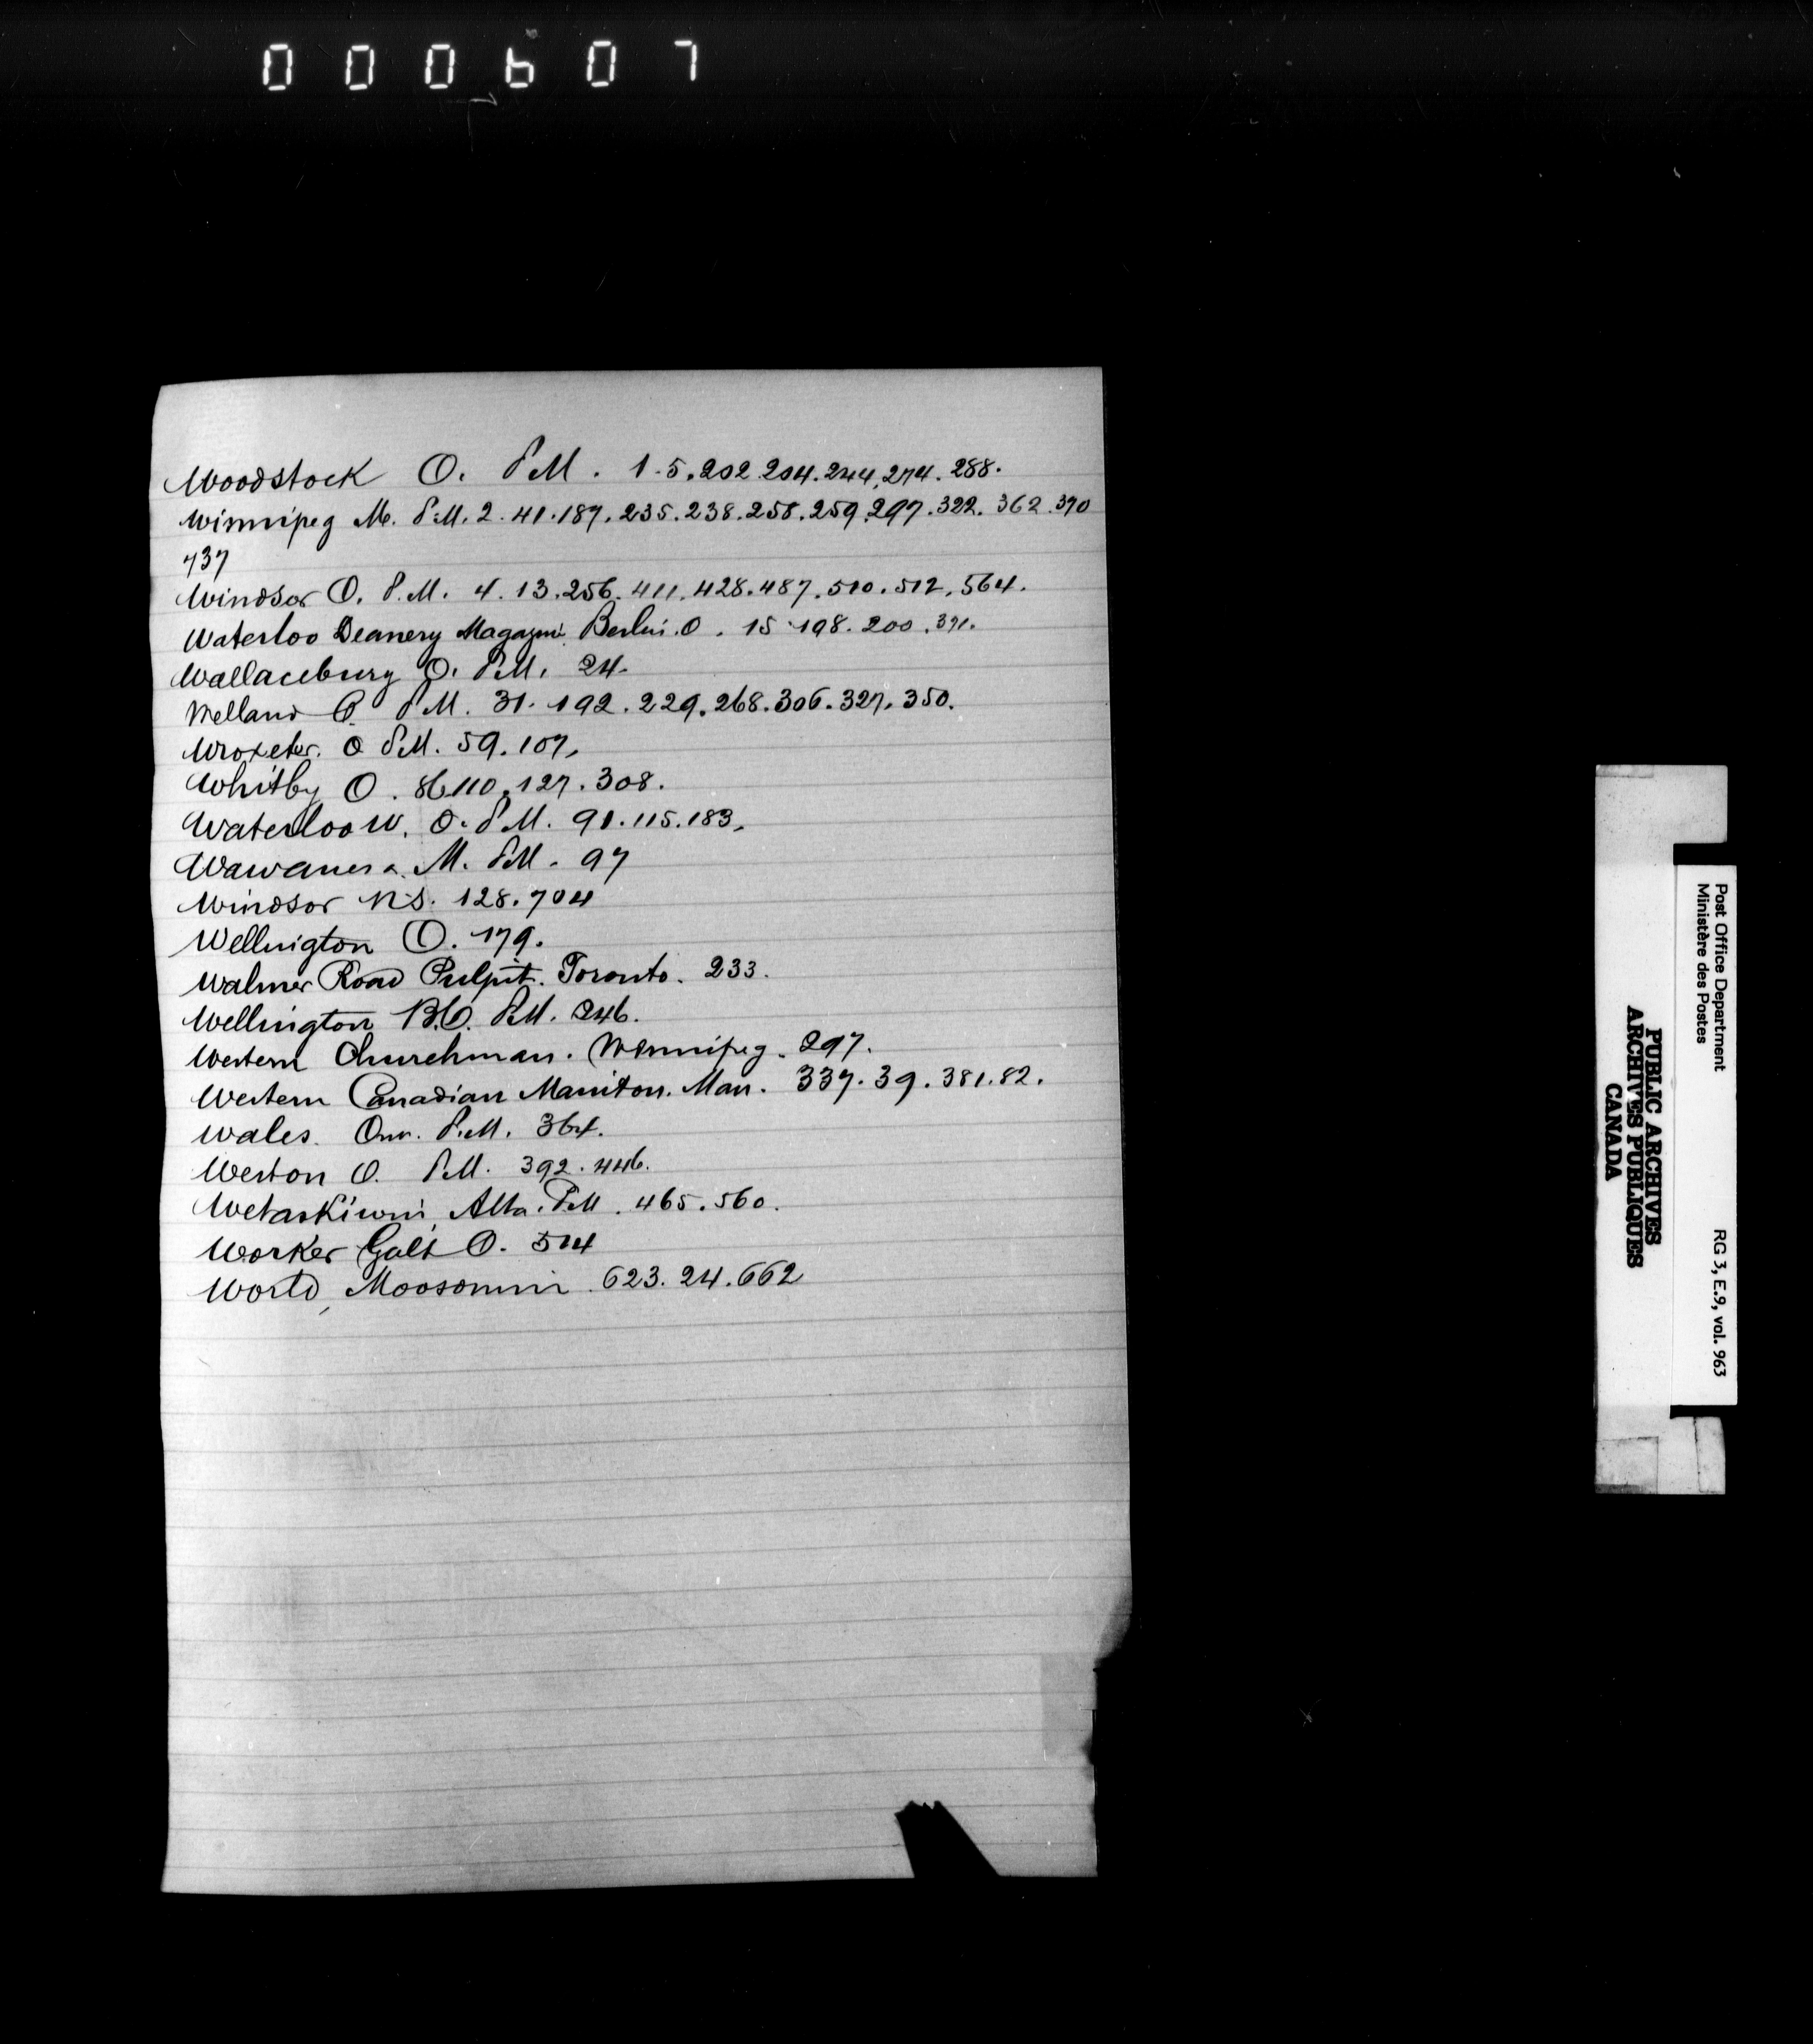 000607
Woodstock O. P.M. 1.5.202.204.244.274.288.
Winnipeg M. P.M. 2.41.187.235.238.258.259.297.322.362.370
737
Windsor O. P.M. 4.13.256.411.428.487.510.512.564.
Waterloo Deanery Magazine Berlin.O. 15.198.200.371.
Wallaceburg O. P.M. 24.
Welland O. P.M. 31.192.229.268.306.327.350.
Wroxeter. O P.M. 59.107.
Whitby O. 86.110.127.308.
Waterloo W. O. P.M. 91.115.183.
Wawanesa. M. P.M. 97
Windsor N.S. 128.704
Wellington O. 179.
Walmer Road Pulpit. Toronto. 233.
Wellington B.C. P.M. 246.
Western Churchman. Winnipeg. 297.
Western Canadian Manitou. Man. 337.39.381.82.
Wales. Ont. P.M. 364.
Weston O. P.M. 392.446.
Wetaskiwin, Alta. P.M. 465.560.
Worker Galt O. 514
World, Moosomin. 623.24.662
Post Office Department
Ministère des Postes
RG 3, E.9, vol. 963
PUBLIC ARCHIVES
ARCHIVES PUBLIQUES
CANADA